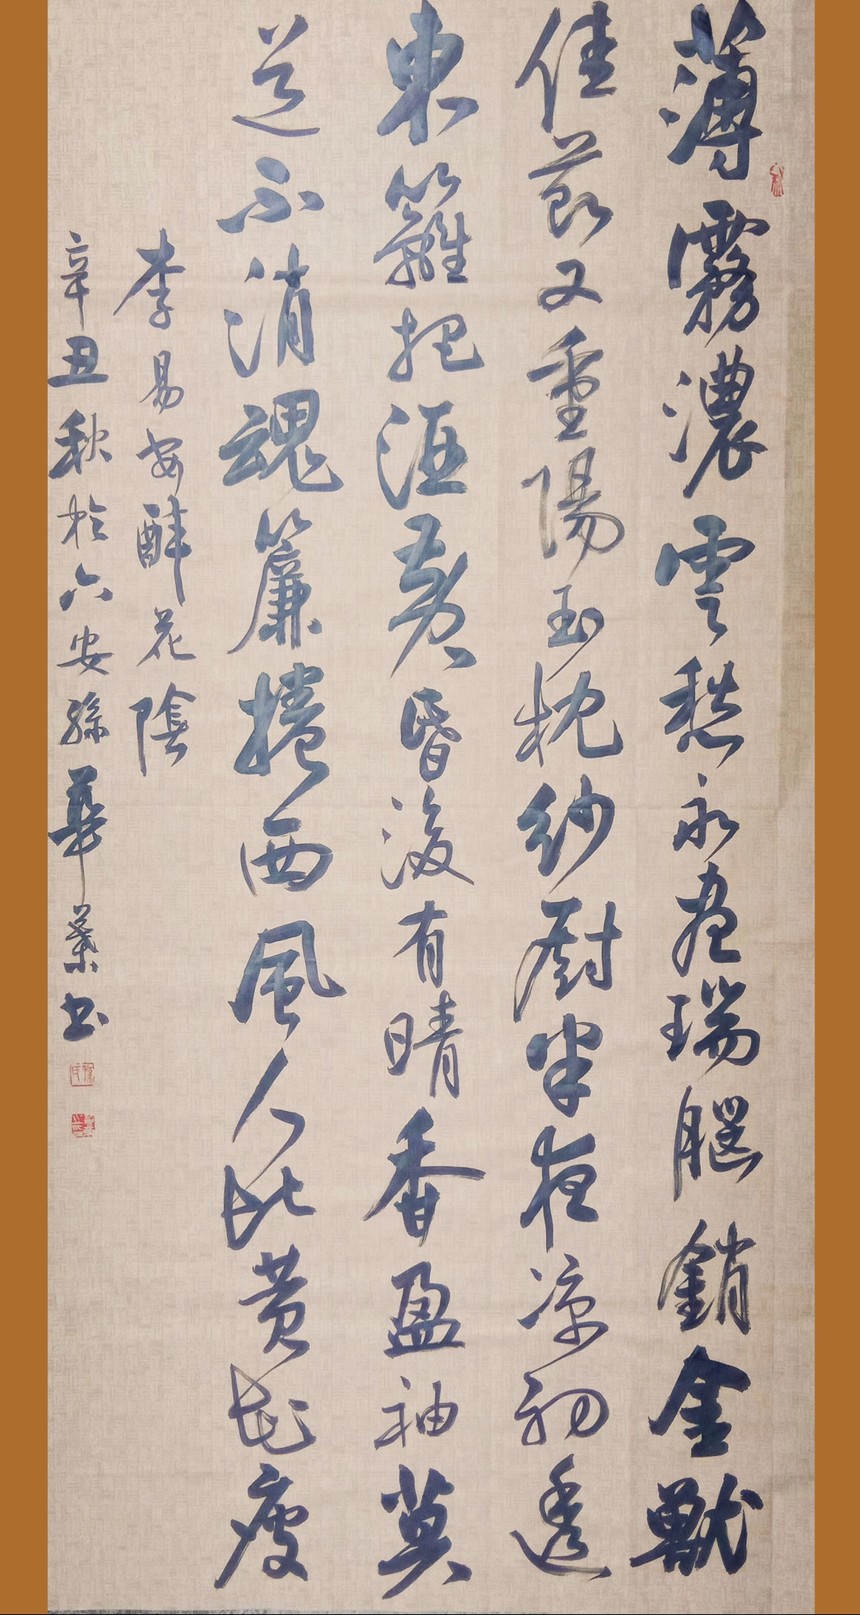 薄霧濃雲愁永晝瑞腦銷金獸
佳節又重陽玉枕紗廚半夜涼初透
東籬把酒黃昏後有暗香盈袖莫
道不消魂簾捲西風人比黃花瘦
李易安醉花陰
辛丑秋於六安孫華業书